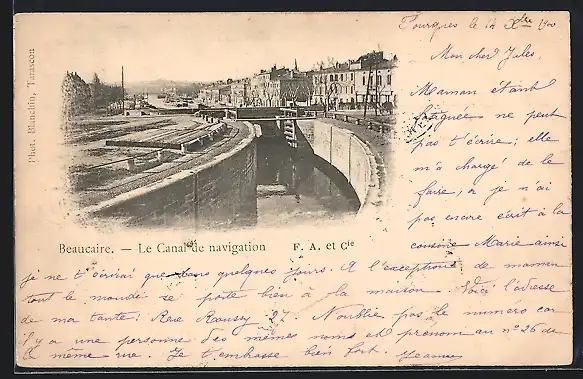 Phot. Blanchin, Tarascon
le 12 Xbre 1900
Mon cher Jules,
Maman étant
fatiguée ne peut
pas t'écrire; elle
m'a chargé de le
faire, je n'ai
pas encore écrit à la
cousine Marie ainsi
Beaucaire. — Le Canal de navigation F. A. et Cie
je ne t'écrirai que dans quelques jours. A l'exception de maman
tout le monde se porte bien à la maison. Voici l'adresse
de ma tante: Rue 27. N'oublie pas le numero car
il y a une personne des mêmes nom et prénom au n° 26 de
la même rue. Je t'embrasse bien fort. Jeanne